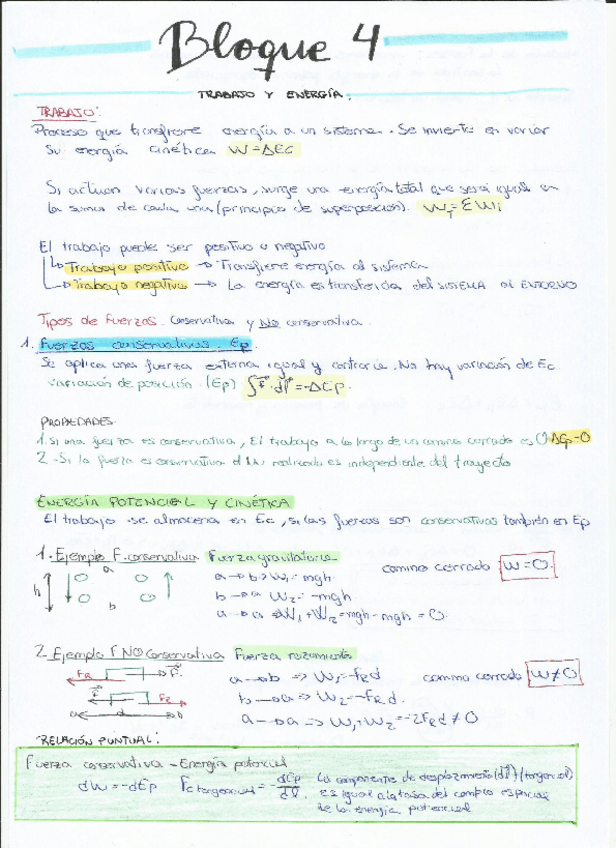 Bloque 4
TRABAJO Y ENERGÍA.
TRABAJO:
Proceso que transfiere energía a un sistema. Se invierte en variar
su energía cinética W=ΔEc
Si actúan varias fuerzas, surge una energía total que será igual en
la suma de cada una (principio de superposición). WT=ΣWi
El trabajo puede ser positivo o negativo
↳ Trabajo positivo → Transfiere energía al sistema
↳ Trabajo negativo → La energía es transferida del SISTEMA al ENTORNO
Tipos de fuerzas. Conservativa y No conservativa.
1. Fuerzas conservativas. Ep.
Se aplica una fuerza externa igual y contraria. No hay variación de Ec
variación de posición. (Ep) ∫F·dl=-ΔEp.
PROPIEDADES.
1. Si una fuerza es conservativa, El trabajo a lo largo de un camino cerrado es 0 ΔEp=0
2 - Si la fuerza es conservativa el W realizado es independiente del trayecto
ENERGÍA POTENCIAL Y CINÉTICA
El trabajo se almacena en Ec, si las fuerzas son conservativas también en Ep
1. Ejemplo F. conservativa Fuerza gravitatoria
a
h
b
a → b W1 = mgh.
b → a W2 = -mgh
a → a = W1 + W2 = mgh - mgh = 0.
camino cerrado W=0.
2 Ejemplo F NO Conservativa Fuerza rozamiento
FR F
F FR
a d b
a → b => W1 = -fR d
b → a => W2 = -fR d.
a → a => W1 + W2 = -2fR d ≠ 0
camino cerrado W≠0
RELACIÓN PUNTUAL:
Fuerza conservativa - Energía potencial
dW = -dEp Fc tangencial = - dEp/dl
La componente de desplazamiento (dl) (tangencial)
es igual a la tasa del cambio espacial
de la energía potencial